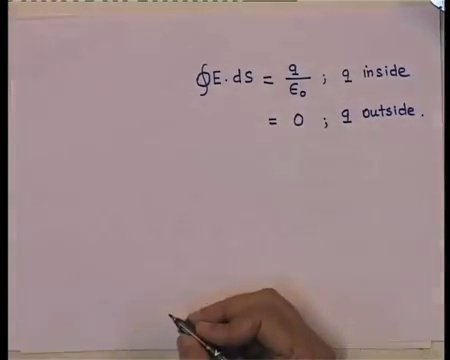 ∮E.dS = q/ϵ₀ ; q inside
= 0 ; q outside.